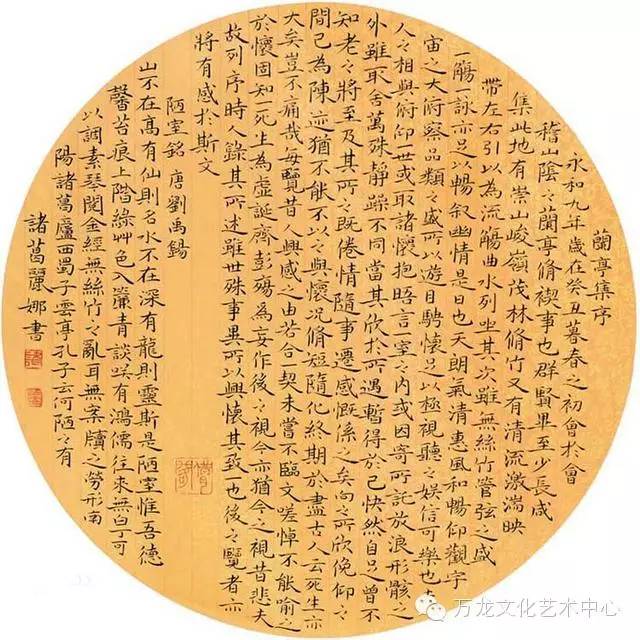 蘭亭集序
永和九年歲在癸丑暮春之初會於會
稽山陰之蘭亭脩禊事也群賢畢至少長咸
集此地有崇山峻嶺茂林脩竹又有清流激湍映
帶左右引以為流觴曲水列坐其次雖無絲竹管弦之盛
一觴一詠亦足以暢敘幽情是日也天朗氣清惠風和暢仰觀宇
宙之大俯察品類之盛所以遊目騁懷足以極視聽之娛信可樂也夫
人之相與俯仰一世或取諸懷抱晤言室之內或因寄所託放浪形骸之
外雖取舍萬殊靜躁不同當其欣於所遇暫得於己快然自足曾不
知老之將至及其所之既倦情隨事遷感慨係之矣向之所欣俛仰之
間已為陳迹猶不能不以之興懷況脩短隨化終期於盡古人云死生亦
大矣豈不痛哉每覽昔人興感之由若合一契未嘗不臨文嗟悼不能喻之
於懷固知一死生為虛誕齊彭殤為妄作後之視今亦猶今之視昔悲夫
故列序時人錄其所述雖世殊事異所以興懷其致一也後之覽者亦
將有感於斯文
陋室銘 唐 劉禹錫
山不在高有仙則名水不在深有龍則靈斯是陋室惟吾德
馨苔痕上階綠艸色入簾青談笑有鴻儒往來無白丁可
以調素琴閱金經無絲竹之亂耳無案牘之勞形南
陽諸葛廬西蜀子雲亭孔子云何陋之有
諸葛麗娜書
万龙文化艺术中心